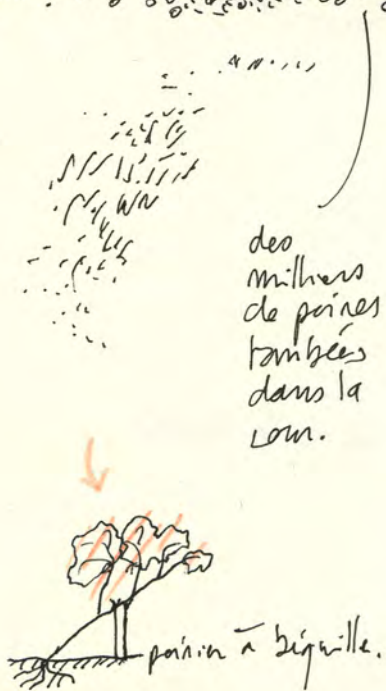 des
milliers
de poires
tombées
dans la
cour.
poirier à béquille.